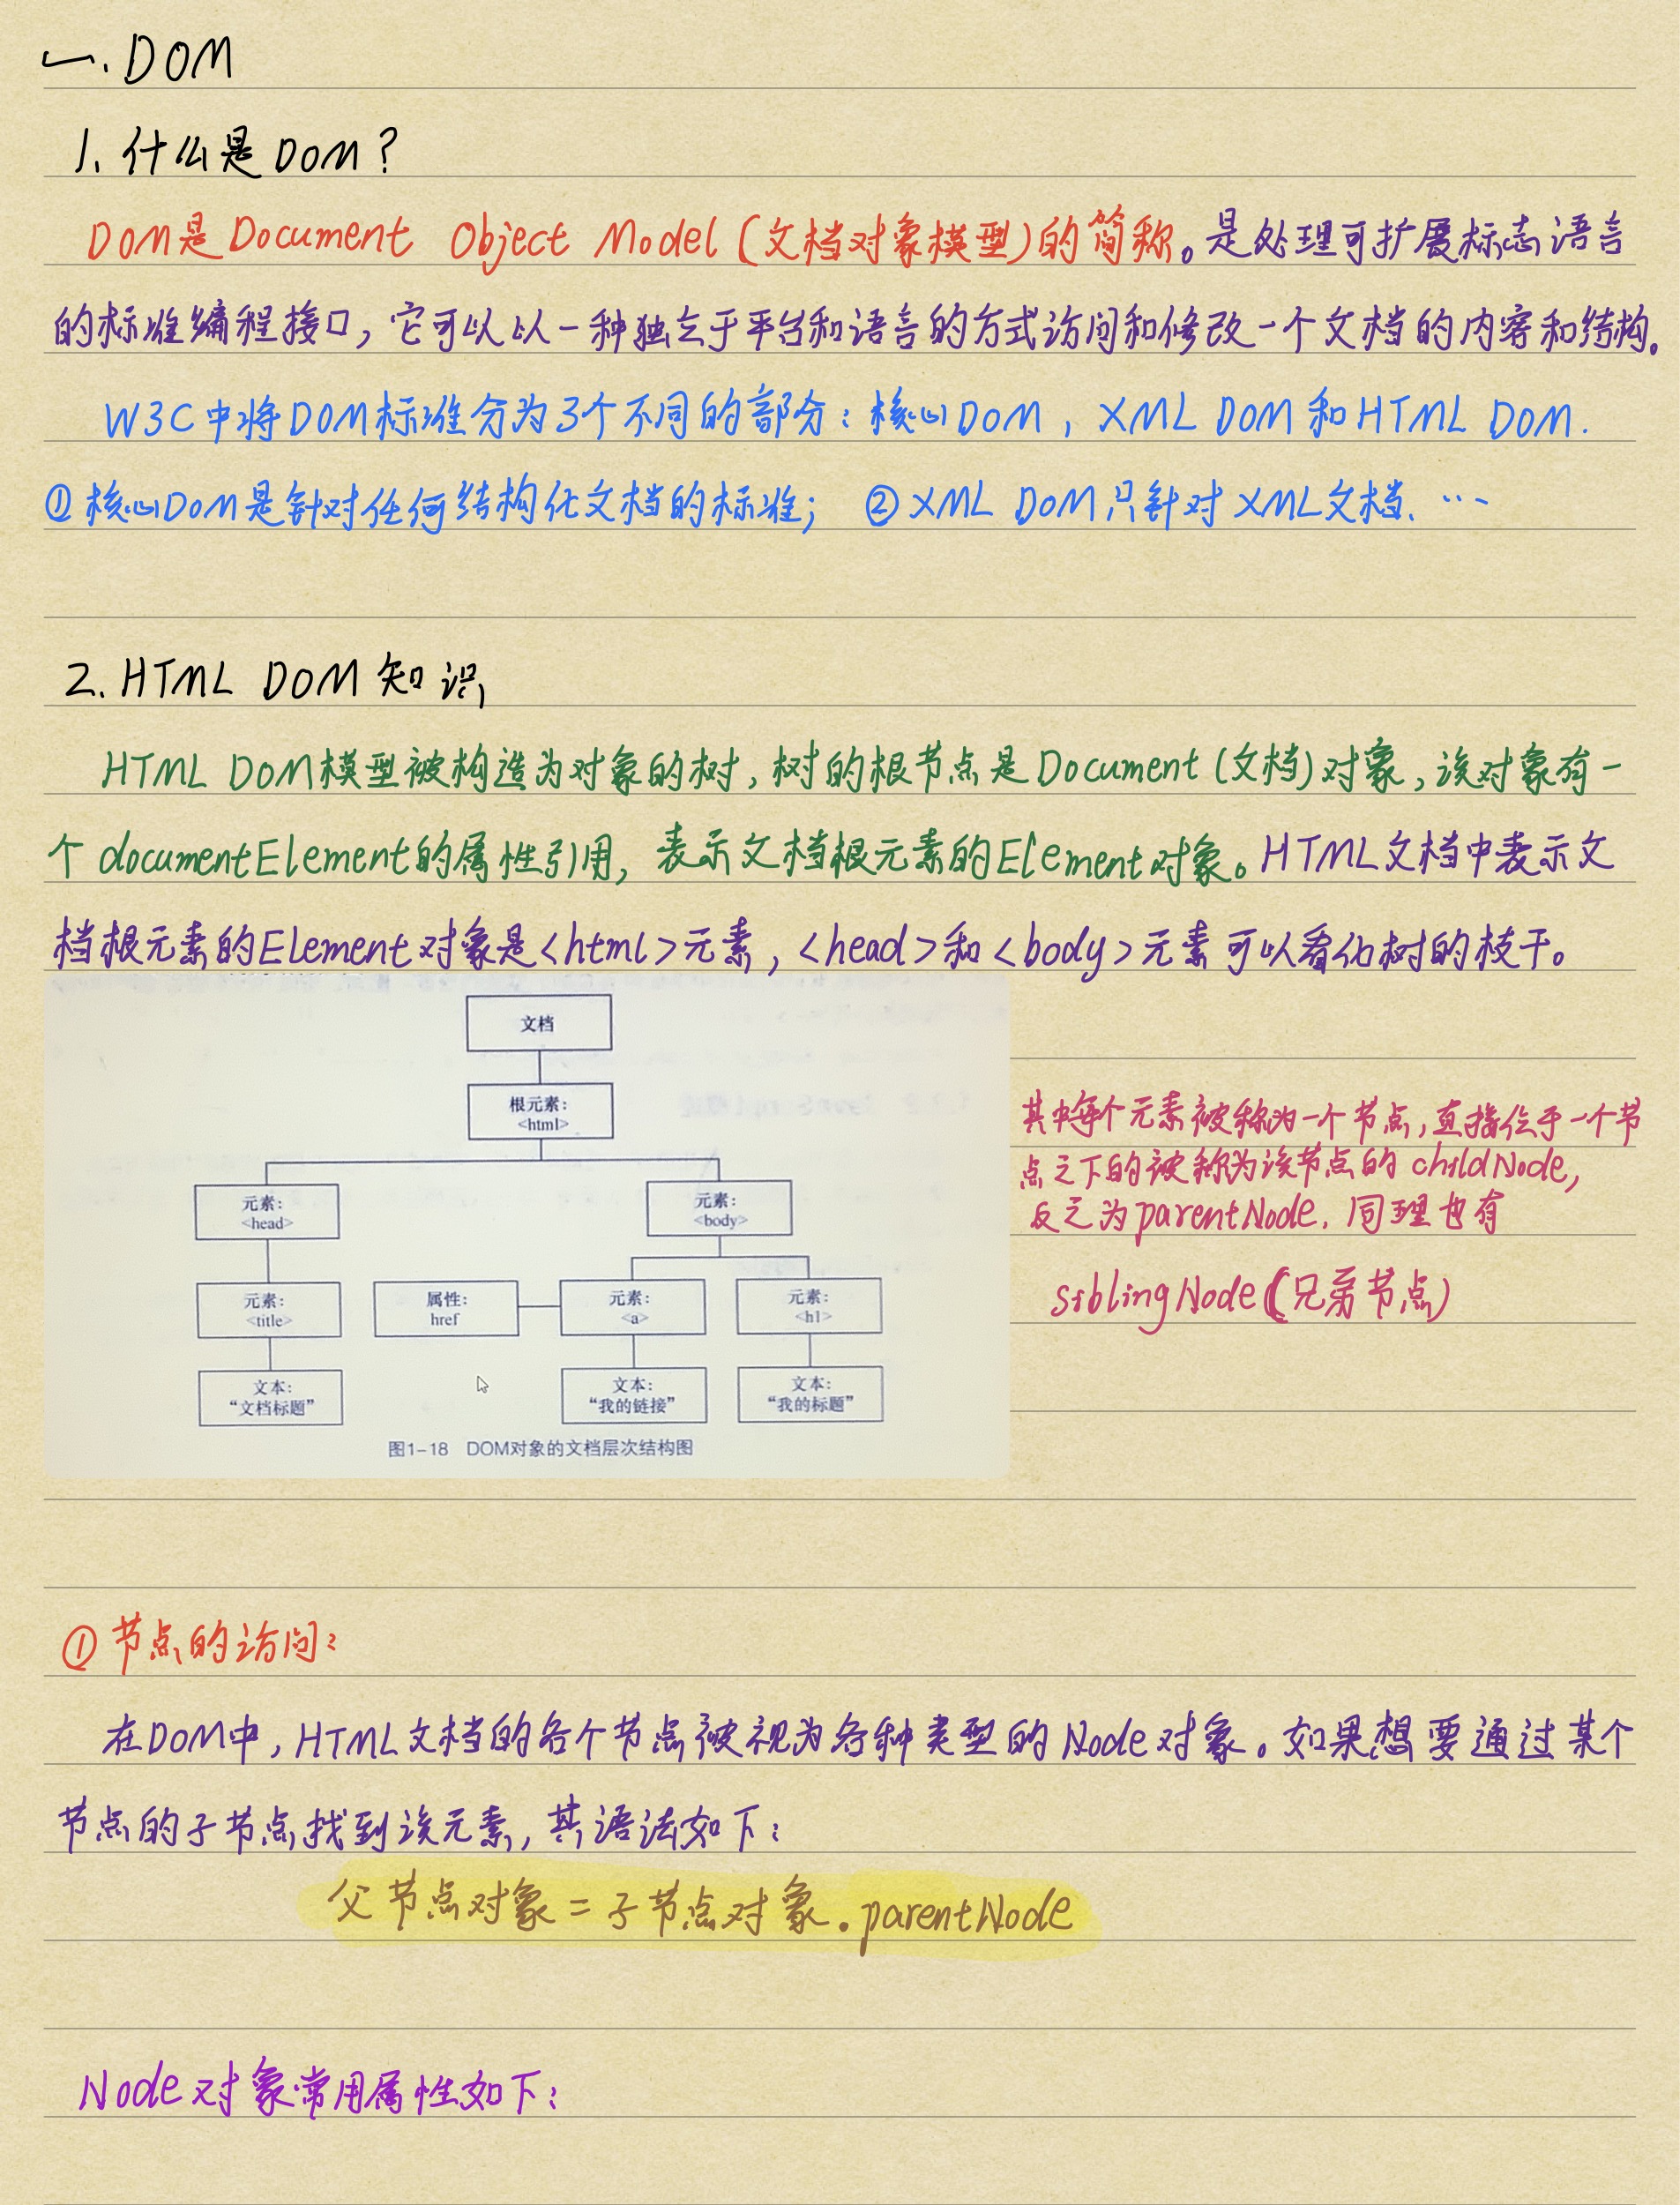 一. DOM
1. 什么是DOM?
DOM是Document Object Model(文档对象模型)的简称。是处理可扩展标志语言
的标准编程接口,它可以以一种独立于平台和语言的方式访问和修改一个文档的内容和结构。
W3C中将DOM标准分为3个不同的部分:核心DOM,XML DOM和HTML DOM.
①核心DOM是针对任何结构化文档的标准; ②XML DOM只针对XML文档、…
2. HTML DOM知识
HTML DOM模型被构造为对象的树,树的根节点是Document(文档)对象,该对象有一
个documentElement的属性引用,表示文档根元素的Element对象。HTML文档中表示文
档根元素的Element对象是<html>元素,<head>和<body>元素可以看作树的枝干。
文档
根元素:
<html>
元素:
<head>
元素:
<body>
元素:
<title>
属性:
href
元素:
<a>
元素:
<h1>
文本:
“文档标题”
文本:
“我的链接”
文本:
“我的标题”
图1-18 DOM对象的文档层次结构图
其中每个元素被称为一个节点,直接位于一个节
点之下的被称为该节点的childNode,
反之为parentNode.同理也有
siblingNode(兄弟节点)
①节点的访问:
在DOM中,HTML文档的各个节点被视为各种类型的Node对象。如果想要通过某个
节点的子节点找到该元素,其语法如下:
父节点对象=子节点对象.parentNode
Node对象常用属性如下: